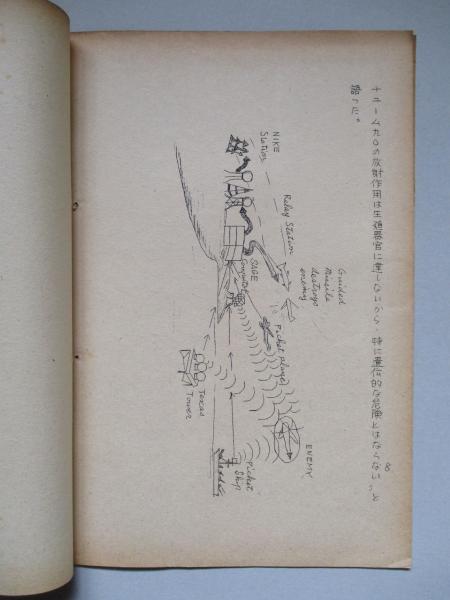 チユームカ0の放射作用は生殖器官に達しないから、特に遺伝的な危険とはならない。」と
語った。
NIKE
Station
Relay Station
Guided
Missile
destroys
enemy
SAGE
Computer
Picket planes
ENEMY
Texas
Tower
Picket
Ship